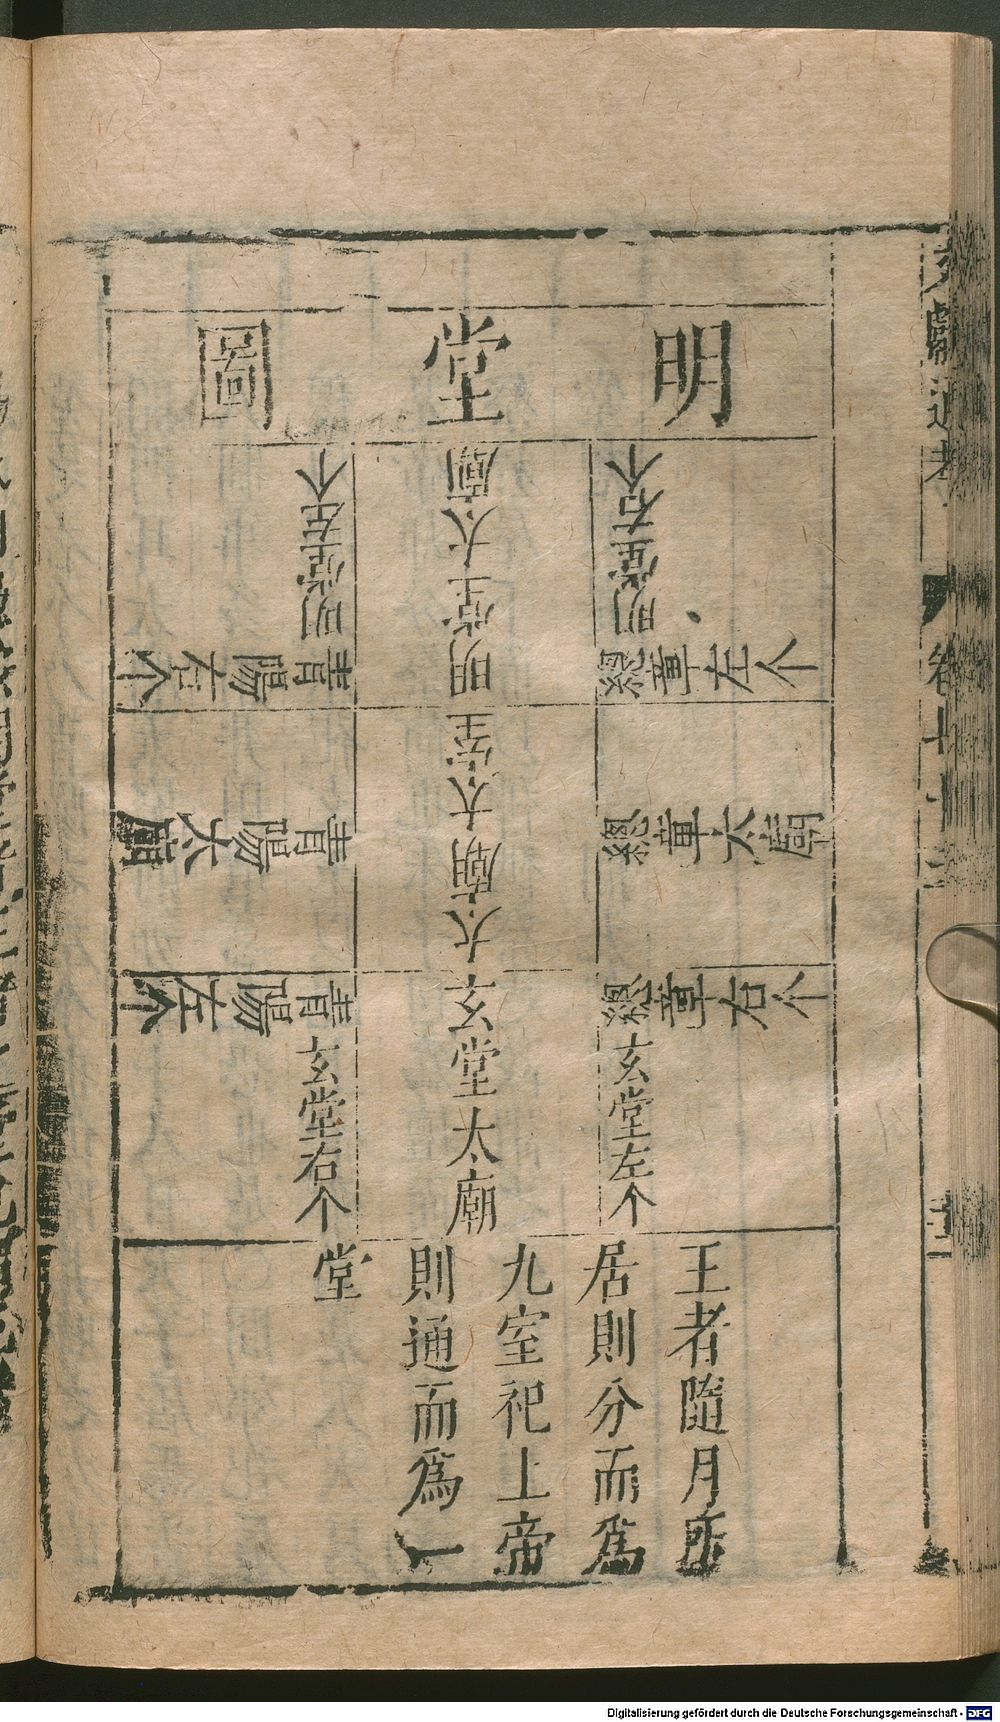 明堂圖
明堂右个
總章左个
明堂太廟
明堂左个
青陽右个
總章太廟
太廟太室
青陽太廟
總章右个
玄堂左个
玄堂太廟
青陽左个
玄堂右个
王者隨月所
居則分而為
九室祀上帝
則通而為一
堂
Digitalisierung gefördert durch die Deutsche Forschungsgemeinschaft - DFG